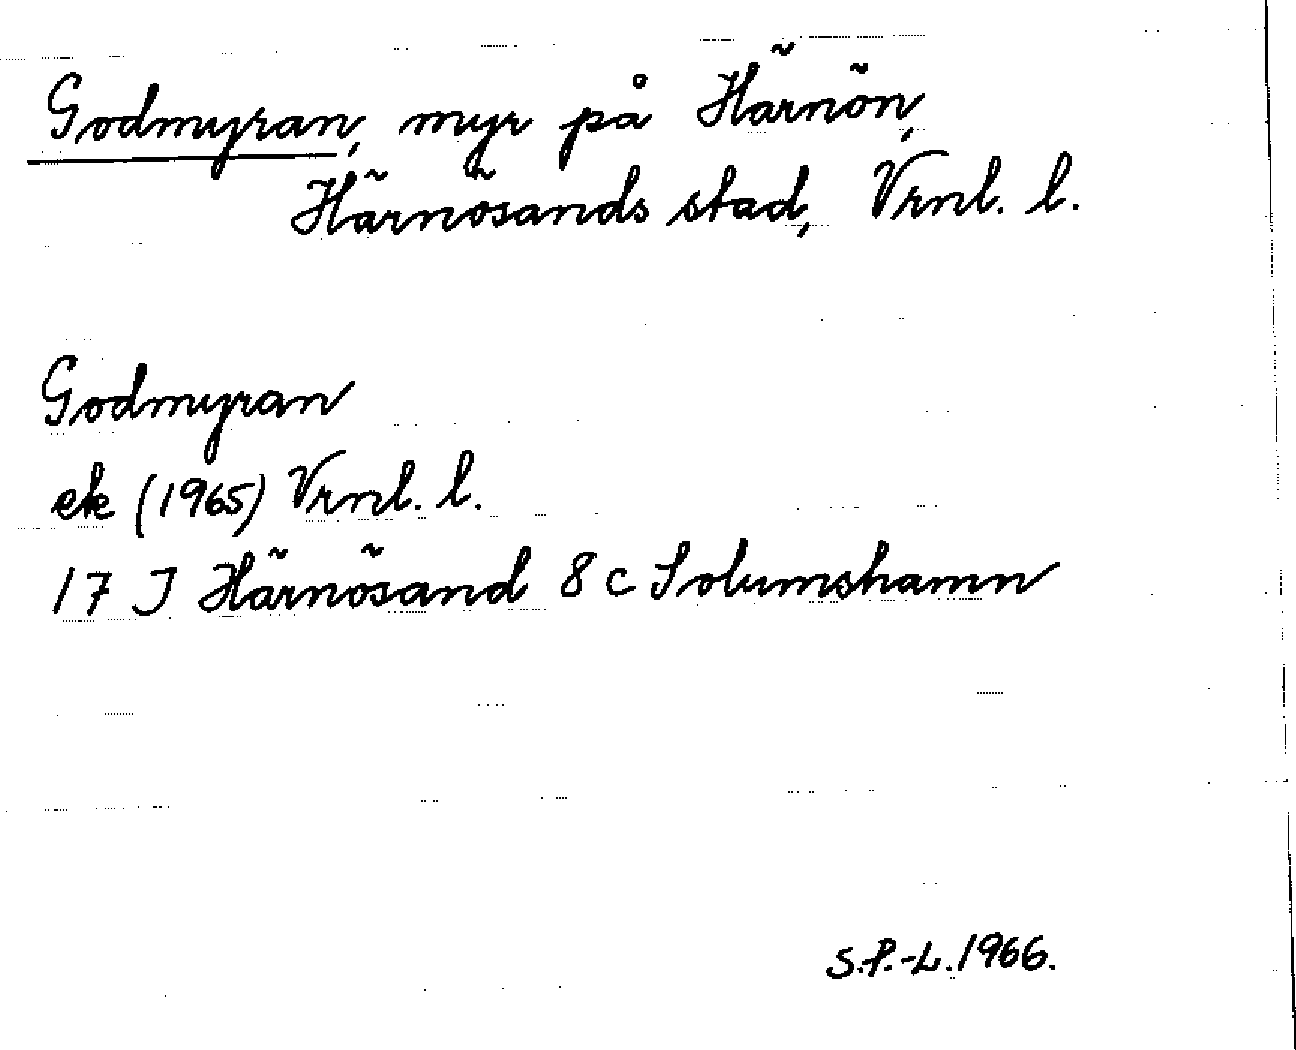 Godmyran, myr på Härnön,
Härnösands stad, Vrnl. l.
Godmyran
ek (1965) Vrnl. l.
17 J Härnösand 8 c Solumshamn
S.P.-L. 1966.